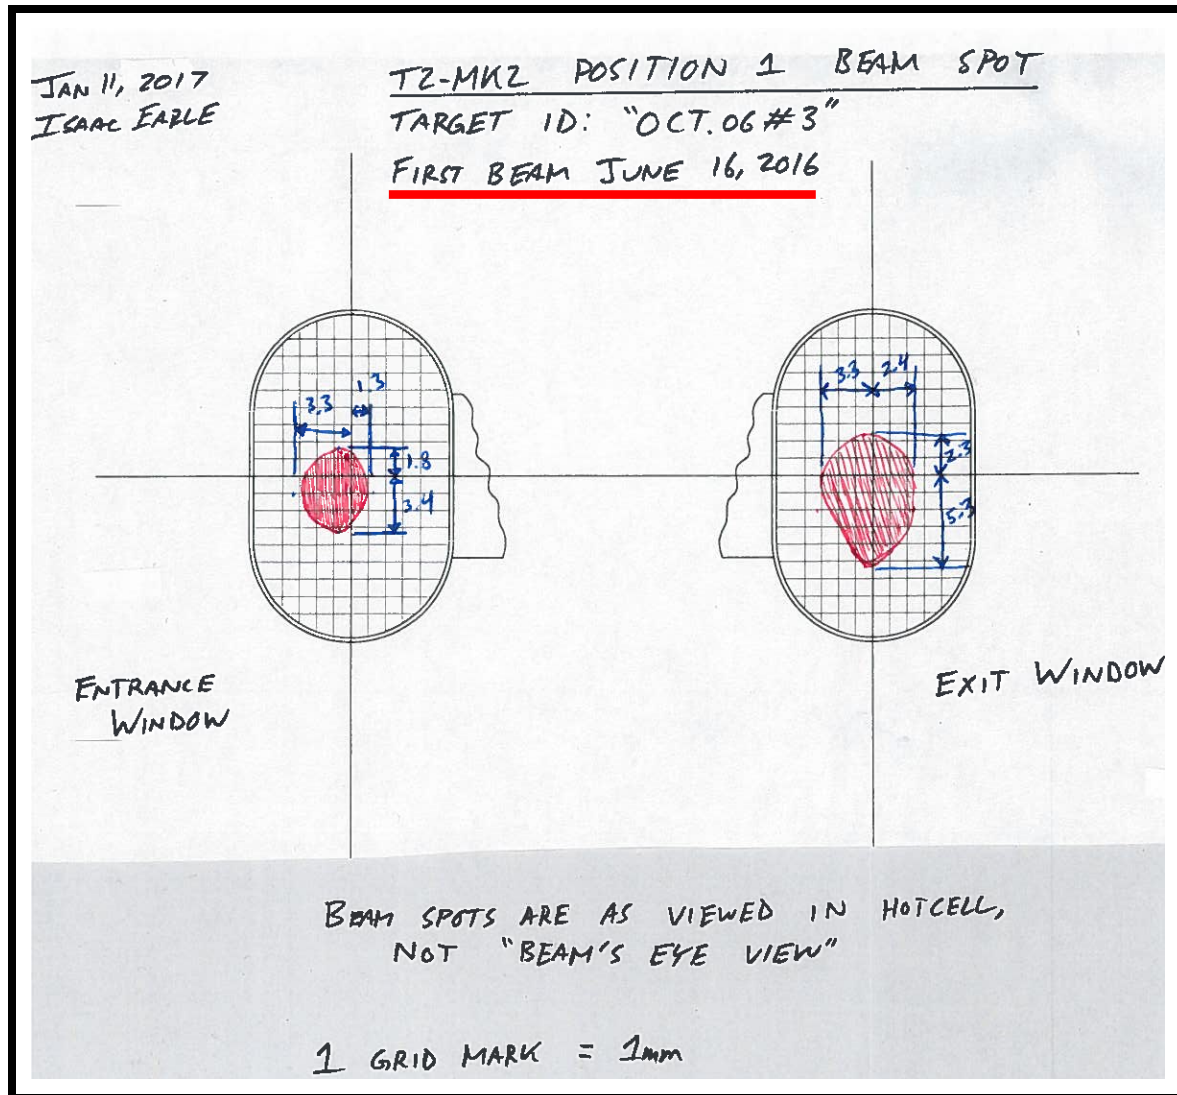 JAN 11, 2017
ISAAC EARLE
T2-MK2 POSITION 1 BEAM SPOT
TARGET ID: "OCT.06 #3"
FIRST BEAM JUNE 16, 2016
1.3
3.3
1.8
3.4
3.3
2.4
2.3
5.3
ENTRANCE
WINDOW
EXIT WINDOW
BEAM SPOTS ARE AS VIEWED IN HOTCELL,
NOT "BEAM'S EYE VIEW"
1 GRID MARK = 1mm